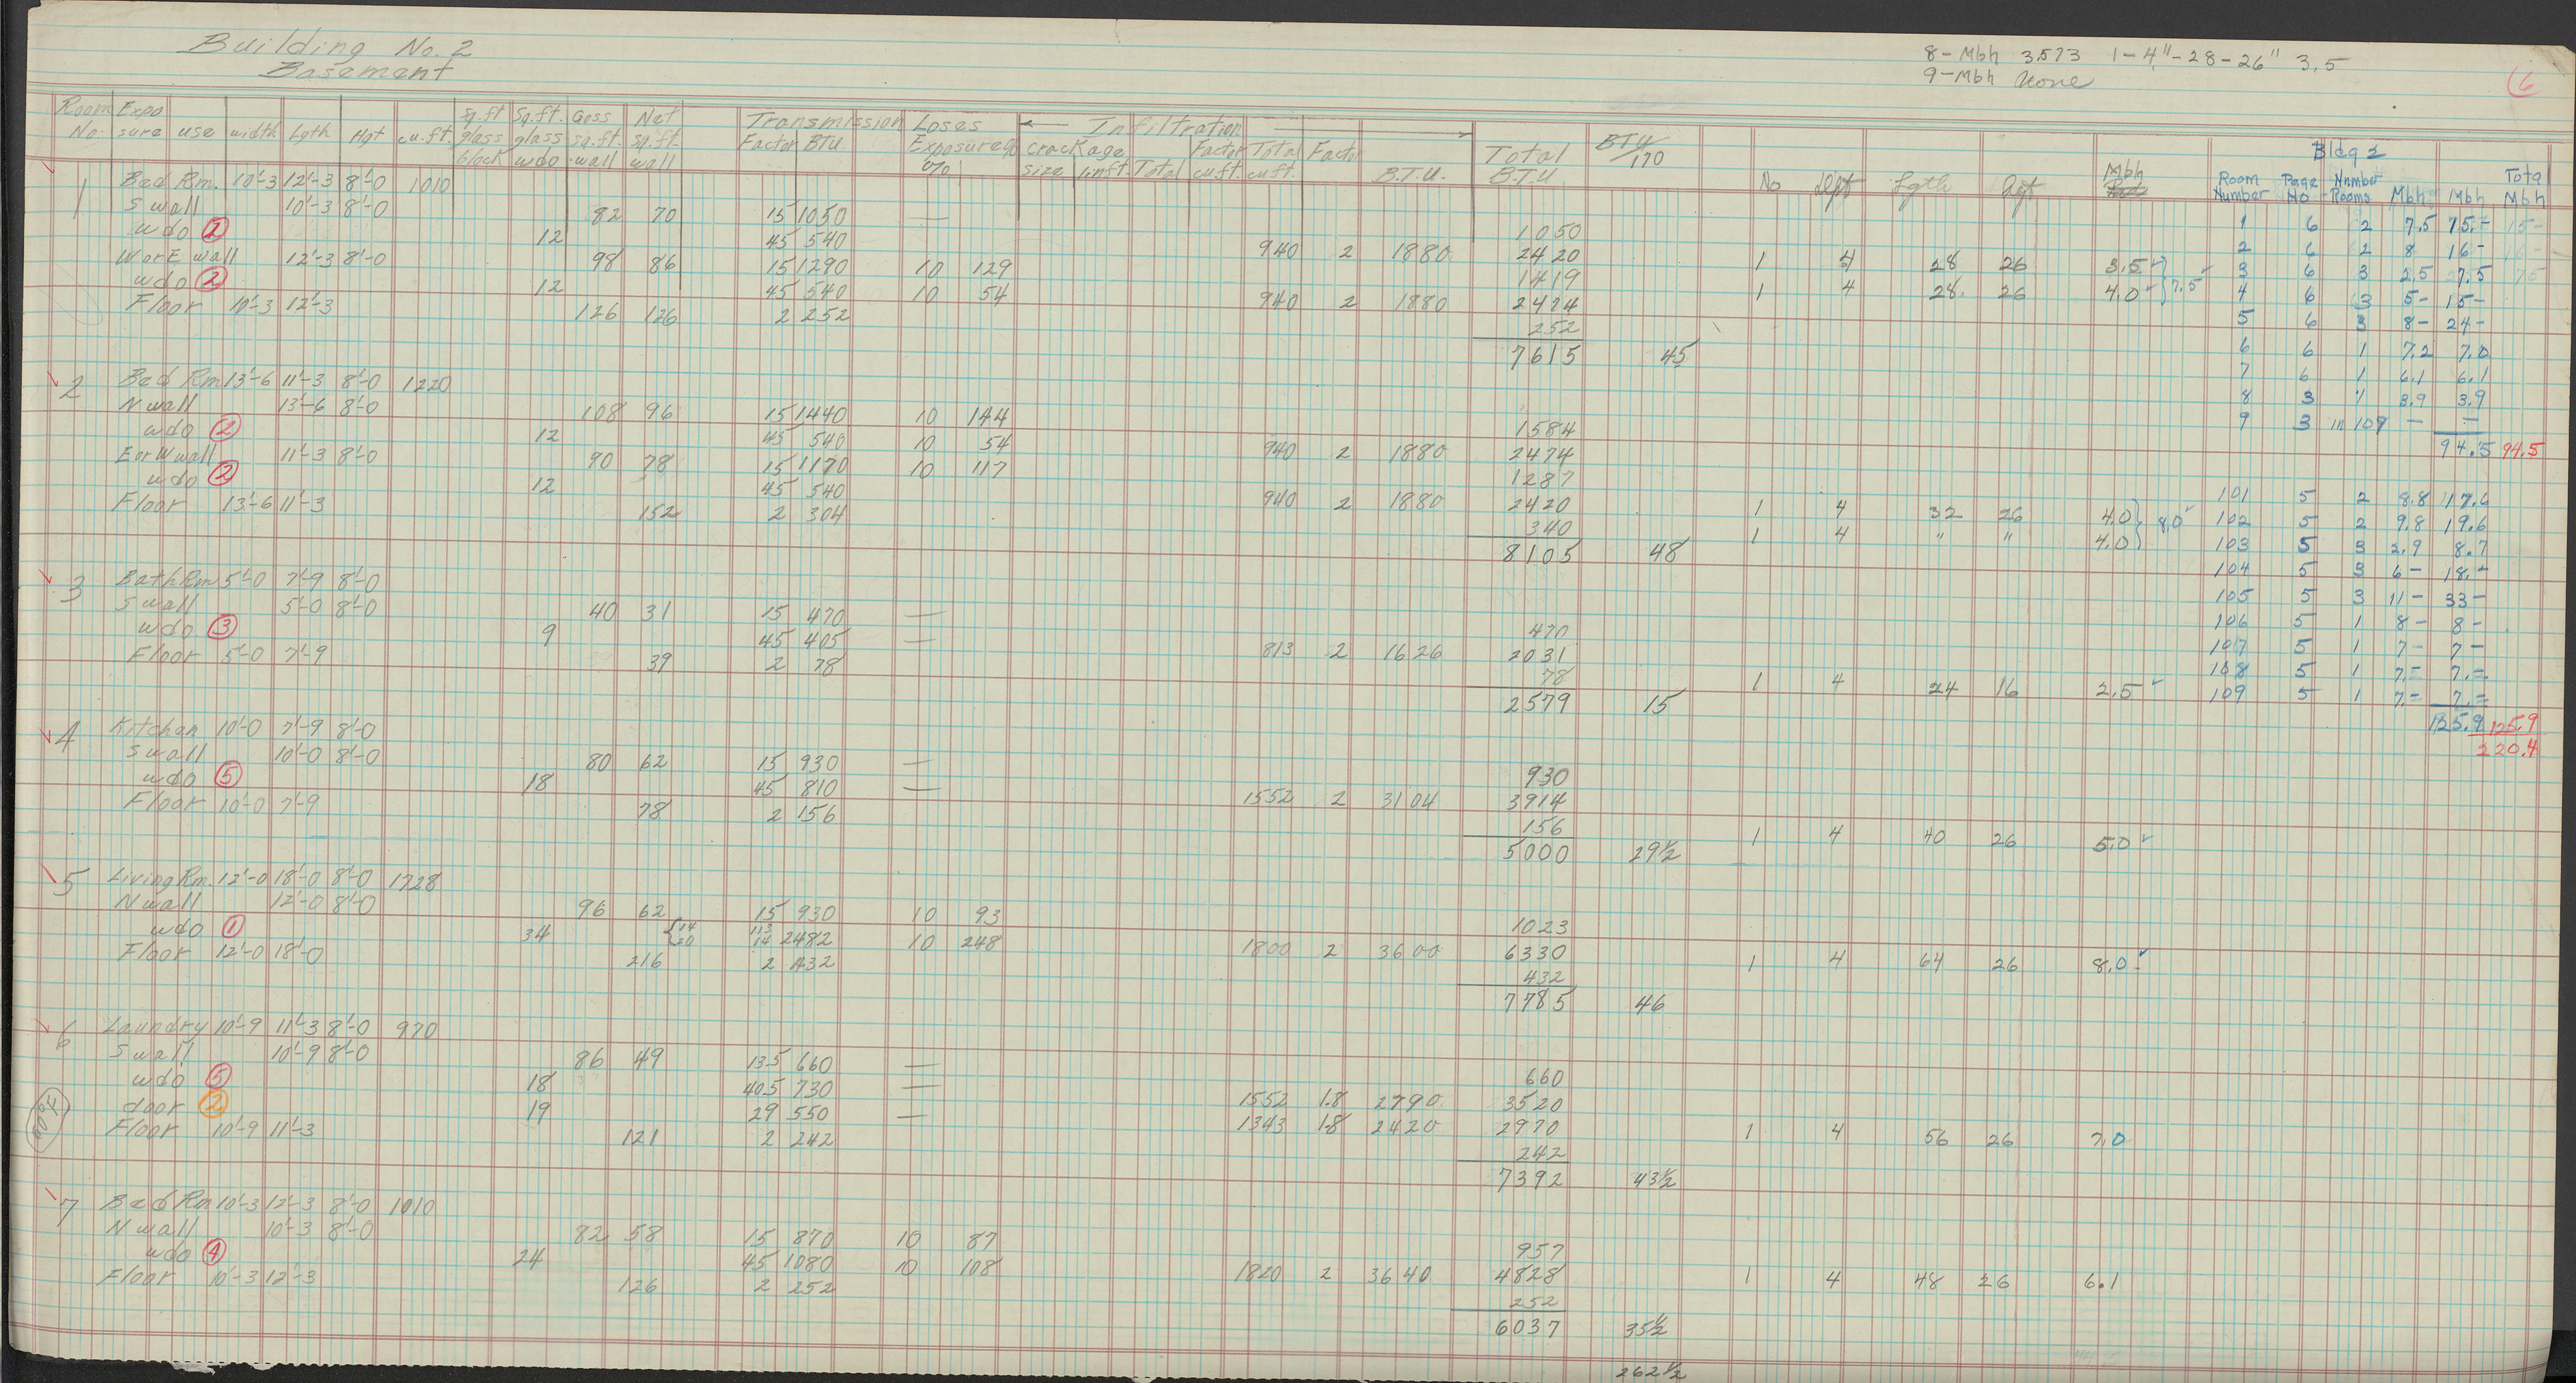 Building No. 2
Basement
8-Mbh 3573 1-4"-28-26" 3.5
9-Mbh None
6
Room No. Expo sure use width Lgth Hgt cu.ft. Sq.ft glass block Sq.ft. glass wdo Goss sq.ft. wall Net sq.ft. wall Transmission Loses Factor BTU. Exposure % Infiltration crackage size linft. Total Factor cu.ft. Total cu.ft. Factor B.T.U. Total B.T.U. BTU/170 No Dpt Lgth Hgt Mbh
1 Bed Rm. 10'-3 12'-3 8'-0 1010
S wall 10'-3 8'-0 82 70 15 1050 — 1050
wdo 1 12 45 540 940 2 1880 2420
W or E wall 12'-3 8'-0 98 86 15 1290 10 129 1419 1 4 28 26 3.5
wdo 2 12 45 540 10 54 940 2 1880 2474 1 4 28 26 4.0 7.5
Floor 10'-3 12'-3 126 126 2 252 252
7615 45
2 Bed Rm 13'-6 11'-3 8'-0 1220
N wall 13'-6 8'-0 108 96 15 1440 10 144 1584
wdo 2 12 45 540 10 54 940 2 1880 2474
E or W wall 11'-3 8'-0 90 78 15 1170 10 117 1287
wdo 2 12 45 540 940 2 1880 2420 1 4 32 26 4.0
Floor 13'-6 11'-3 152 2 304 340 1 4 " " 4.0 8.0
8105 48
3 Bath Rm 5'-0 7'-9 8'-0
S wall 5'-0 8'-0 40 31 15 470 — 470
wdo 3 9 45 405 — 813 2 1626 2031
Floor 5'-0 7'-9 39 2 78 78 1 4 24 16 2.5
2579 15
4 Kitchen 10'-0 7'-9 8'-0
S wall 10'-0 8'-0 80 62 15 930 — 930
wdo 5 18 45 810 — 1552 2 3104 3914
Floor 10'-0 7'-9 78 2 156 156 1 4 40 26 5.0
5000 29½
5 Living Rm. 12'-0 18'-0 8'-0 1728
N wall 12'-0 8'-0 96 62 15 930 10 93 1023
wdo 1 34 {14 20 113 14 2482 10 248 1800 2 3600 6330
Floor 12'-0 18'-0 216 2 432 432 1 4 64 26 8.0
7785 46
6 Laundry 10'-9 11'-3 8'-0 970
S wall 10'-9 8'-0 86 49 13.5 660 — 660
wdo 5 18 40.5 730 — 1552 1.8 2790 3520
door 2 19 29 550 — 1343 1.8 2420 2970
Floor 10'-9 11'-3 121 2 242 242 1 4 56 26 7.0
7392 43½
7 Bed Rm 10'-3 12'-3 8'-0 1010
N wall 10'-3 8'-0 82 58 15 870 10 87 957
wdo 4 24 45 1080 10 108 1820 2 3640 4828
Floor 10'-3 12'-3 126 2 252 252 1 4 48 26 6.1
6037 35½
262½
Bldg 2
Room Number Page No Number Rooms Mbh Mbh Total Mbh
1 6 2 7.5 15.- 15-
2 6 2 8 16- 16-
3 6 3 2.5 7.5 7.5
4 6 3 5- 15-
5 6 3 8- 24-
6 6 1 7.2 7.0
7 6 1 6.1 6.1
8 3 1 3.9 3.9
9 3 in 109 — —
94.5 94.5
101 5 2 8.8 17.6
102 5 2 9.8 19.6
103 5 3 2.9 8.7
104 5 3 6- 18.-
105 5 3 11- 33-
106 5 1 8- 8-
107 5 1 7- 7-
108 5 1 7.- 7.-
109 5 1 7.- 7.-
125.9 125.9
220.4